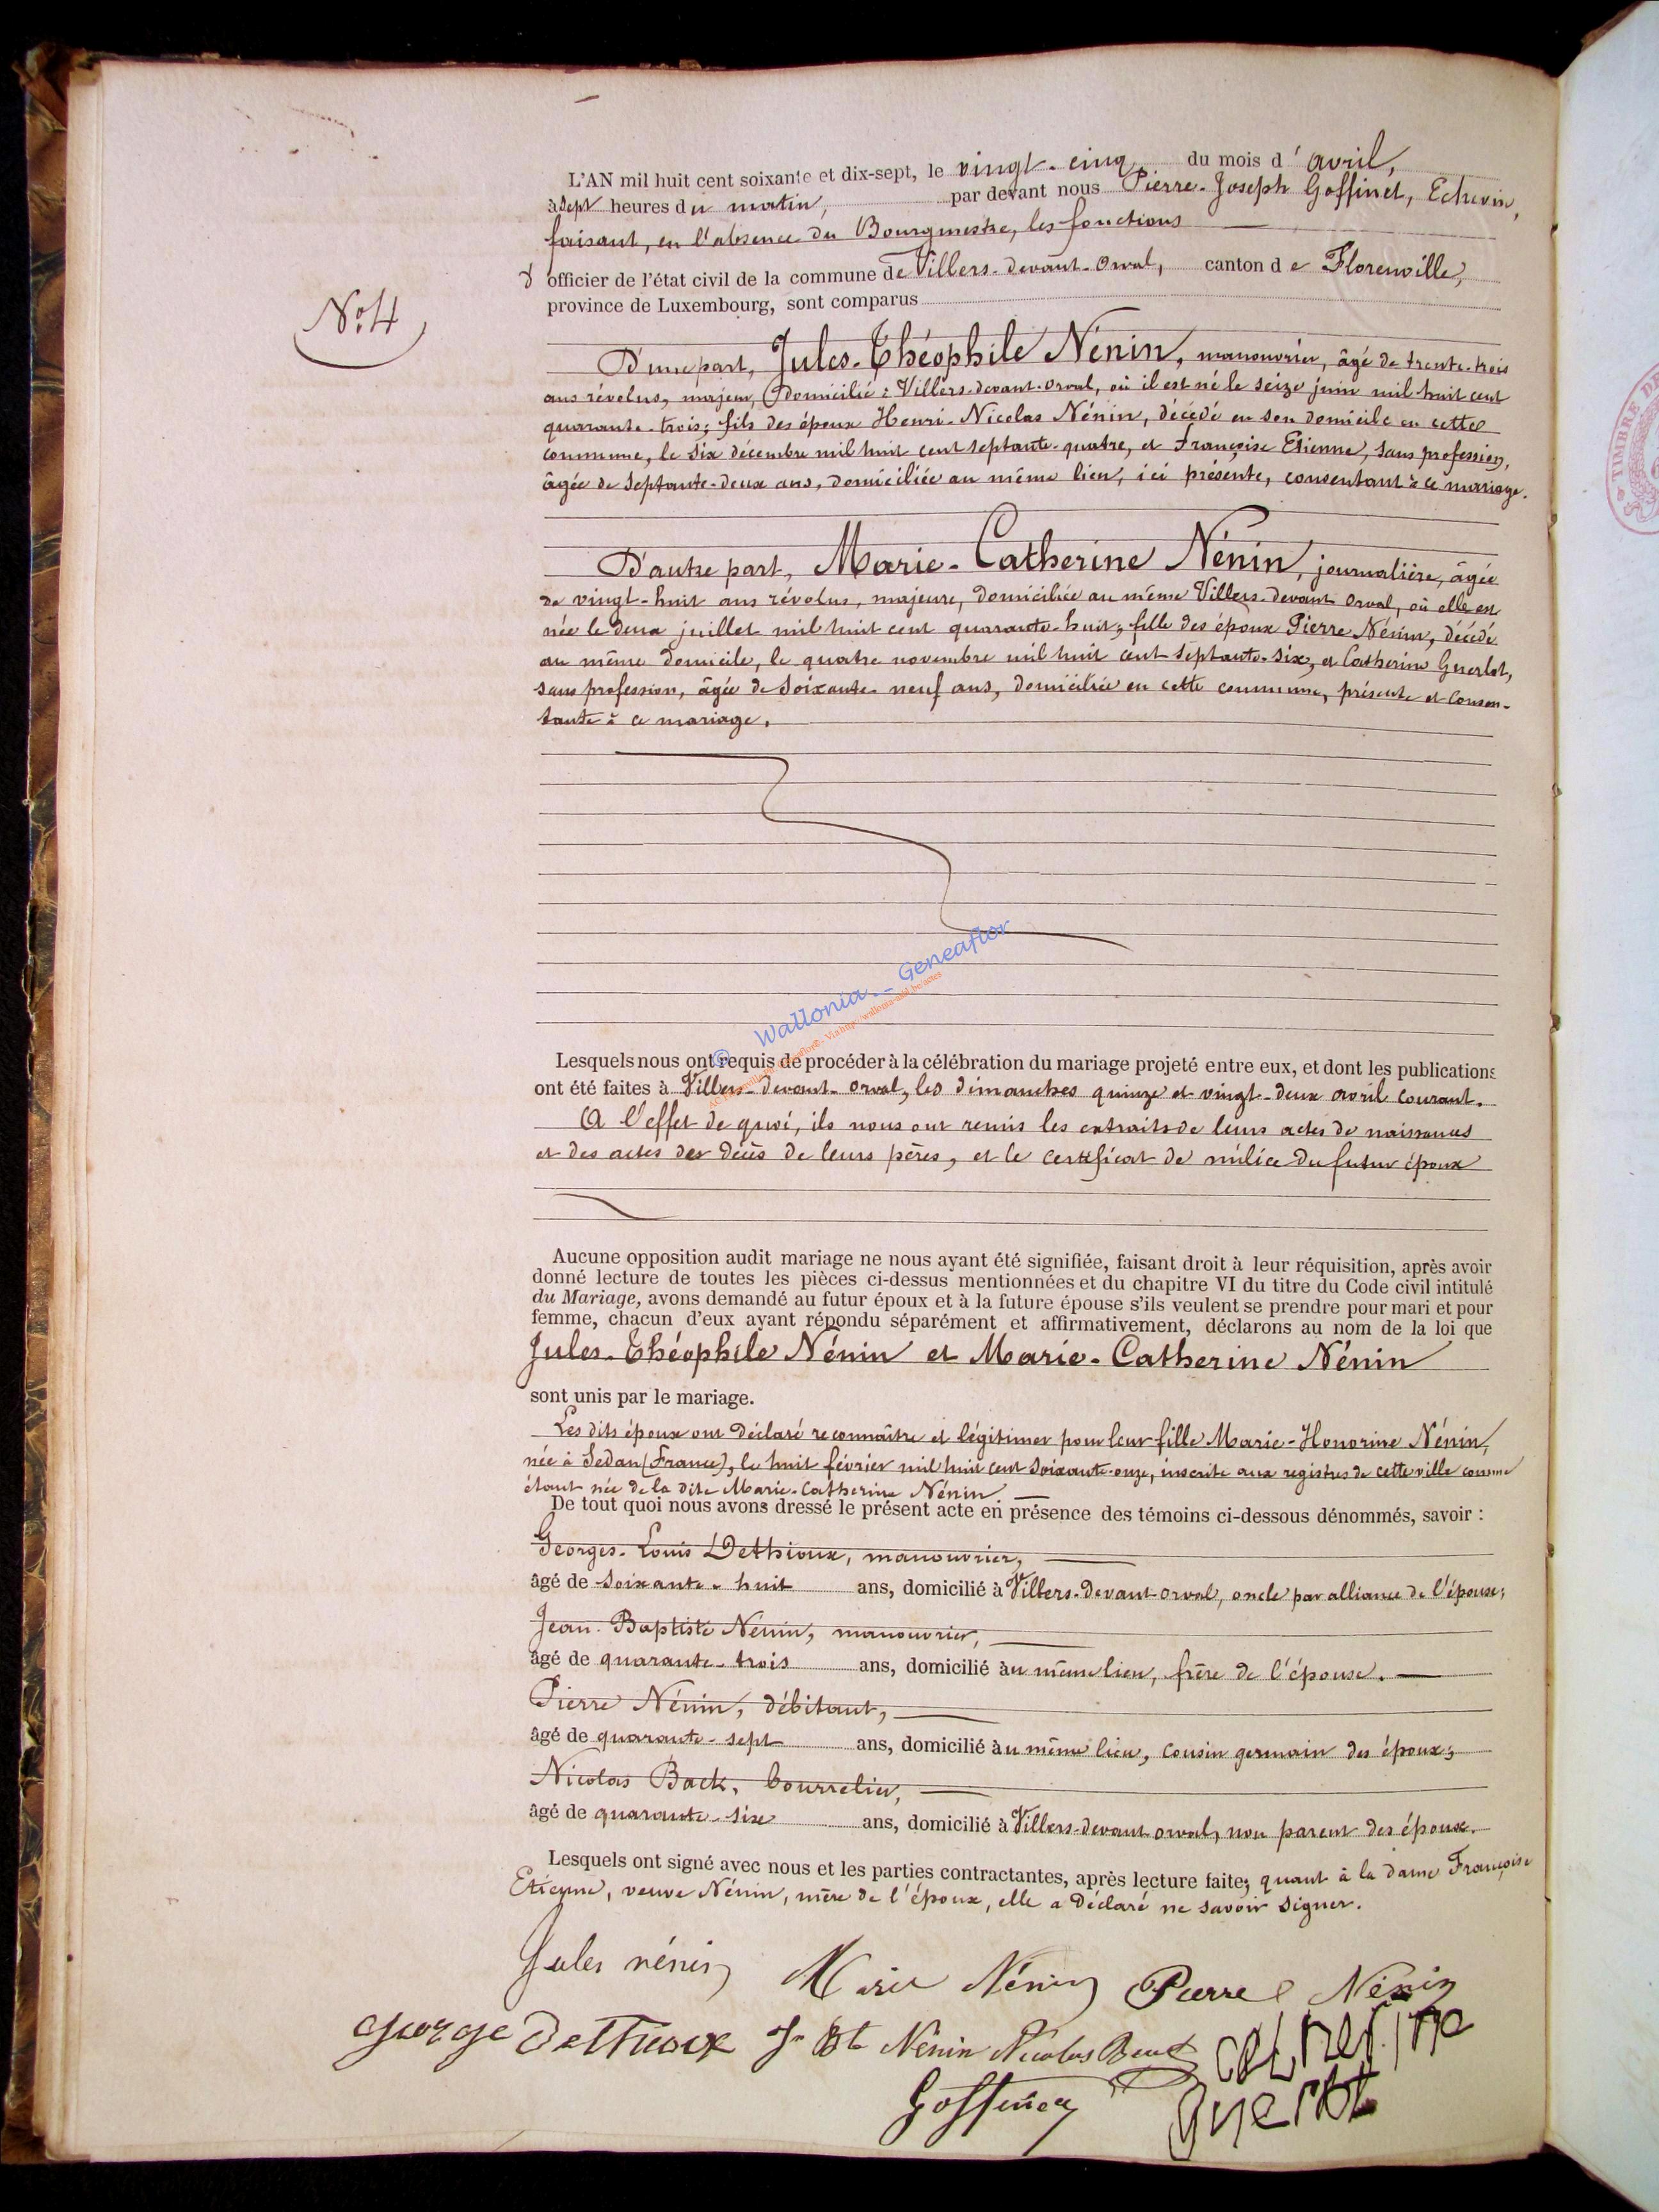 L'AN mil huit cent soixante et dix-sept, le vingt-cinq du mois d'avril,
à sept heures du matin, par devant nous Pierre-Joseph Goffinet, Echevin,
faisant, en l'absence du Bourgmestre, les fonctions
d' officier de l'état civil de la commune de Villers-devant-Orval, canton de Florenville,
province de Luxembourg, sont comparus
N° 4
D'une part, Jules-Théophile Nénin, manouvrier, âgé de trente-trois
ans révolus, majeur, domicilié à Villers-devant-Orval, où il est né le seize juin mil huit cent
quarante-trois; fils des époux Henri-Nicolas Nénin, décédé en son domicile en cette
commune, le six décembre mil huit cent septante-quatre, et Françoise Etienne, sans profession,
âgée de septante-deux ans, domiciliée au même lieu, ici présente, consentant à ce mariage.
D'autre part, Marie-Catherine Nénin, journalière, âgée
de vingt-huit ans révolus, majeure, domiciliée au même Villers-devant-Orval, où elle est
née le deux juillet mil huit cent quarante-huit, fille des époux Pierre Nénin, décédé
au même domicile, le quatre novembre mil huit cent septante-six, et Catherine Guerlot,
sans profession, âgée de soixante-neuf ans, domiciliée en cette commune, présente et consen-
tante à ce mariage.
© Wallonia__Geneaflor
Via http://wallonia-asbl.be/actes
Lesquels nous ont requis de procéder à la célébration du mariage projeté entre eux, et dont les publications
ont été faites à Villers-devant-Orval, les dimanches quinze et vingt-deux avril courant.
A l'effet de quoi, ils nous ont remis les extraits de leurs actes de naissances
et des actes des décès de leurs pères, et le certificat de milice du futur époux
Aucune opposition audit mariage ne nous ayant été signifiée, faisant droit à leur réquisition, après avoir
donné lecture de toutes les pièces ci-dessus mentionnées et du chapitre VI du titre du Code civil intitulé
du Mariage, avons demandé au futur époux et à la future épouse s'ils veulent se prendre pour mari et pour
femme, chacun d'eux ayant répondu séparément et affirmativement, déclarons au nom de la loi que
Jules-Théophile Nénin et Marie-Catherine Nénin
sont unis par le mariage.
Les dits époux ont déclaré reconnaître et légitimer pour leur fille Marie-Honorine Nénin,
née à Sedan (France), le huit février mil huit cent soixante-onze, inscrite aux registres de cette ville comme
étant née de la dite Marie-Catherine Nénin.
De tout quoi nous avons dressé le présent acte en présence des témoins ci-dessous dénommés, savoir :
Georges-Louis Dethioux, manouvrier,
âgé de soixante-huit ans, domicilié à Villers-devant-Orval, oncle par alliance de l'épouse;
Jean-Baptiste Nénin, manouvrier,
âgé de quarante-trois ans, domicilié au même lieu, frère de l'épouse.
Pierre Nénin, débitant,
âgé de quarante-sept ans, domicilié au même lieu, cousin germain des époux;
Nicolas Back, bourrelier,
âgé de quarante-six ans, domicilié à Villers-devant-Orval, non parent des époux.
Lesquels ont signé avec nous et les parties contractantes, après lecture faite; quant à la dame Françoise
Etienne, veuve Nénin, mère de l'époux, elle a déclaré ne savoir signer.
Jules nénin Marie Nénin Pierre Nénin
george Dethioux J-Bte Nénin Nicolas Back catherine
Goffinet guerlot
TIMBRE DE